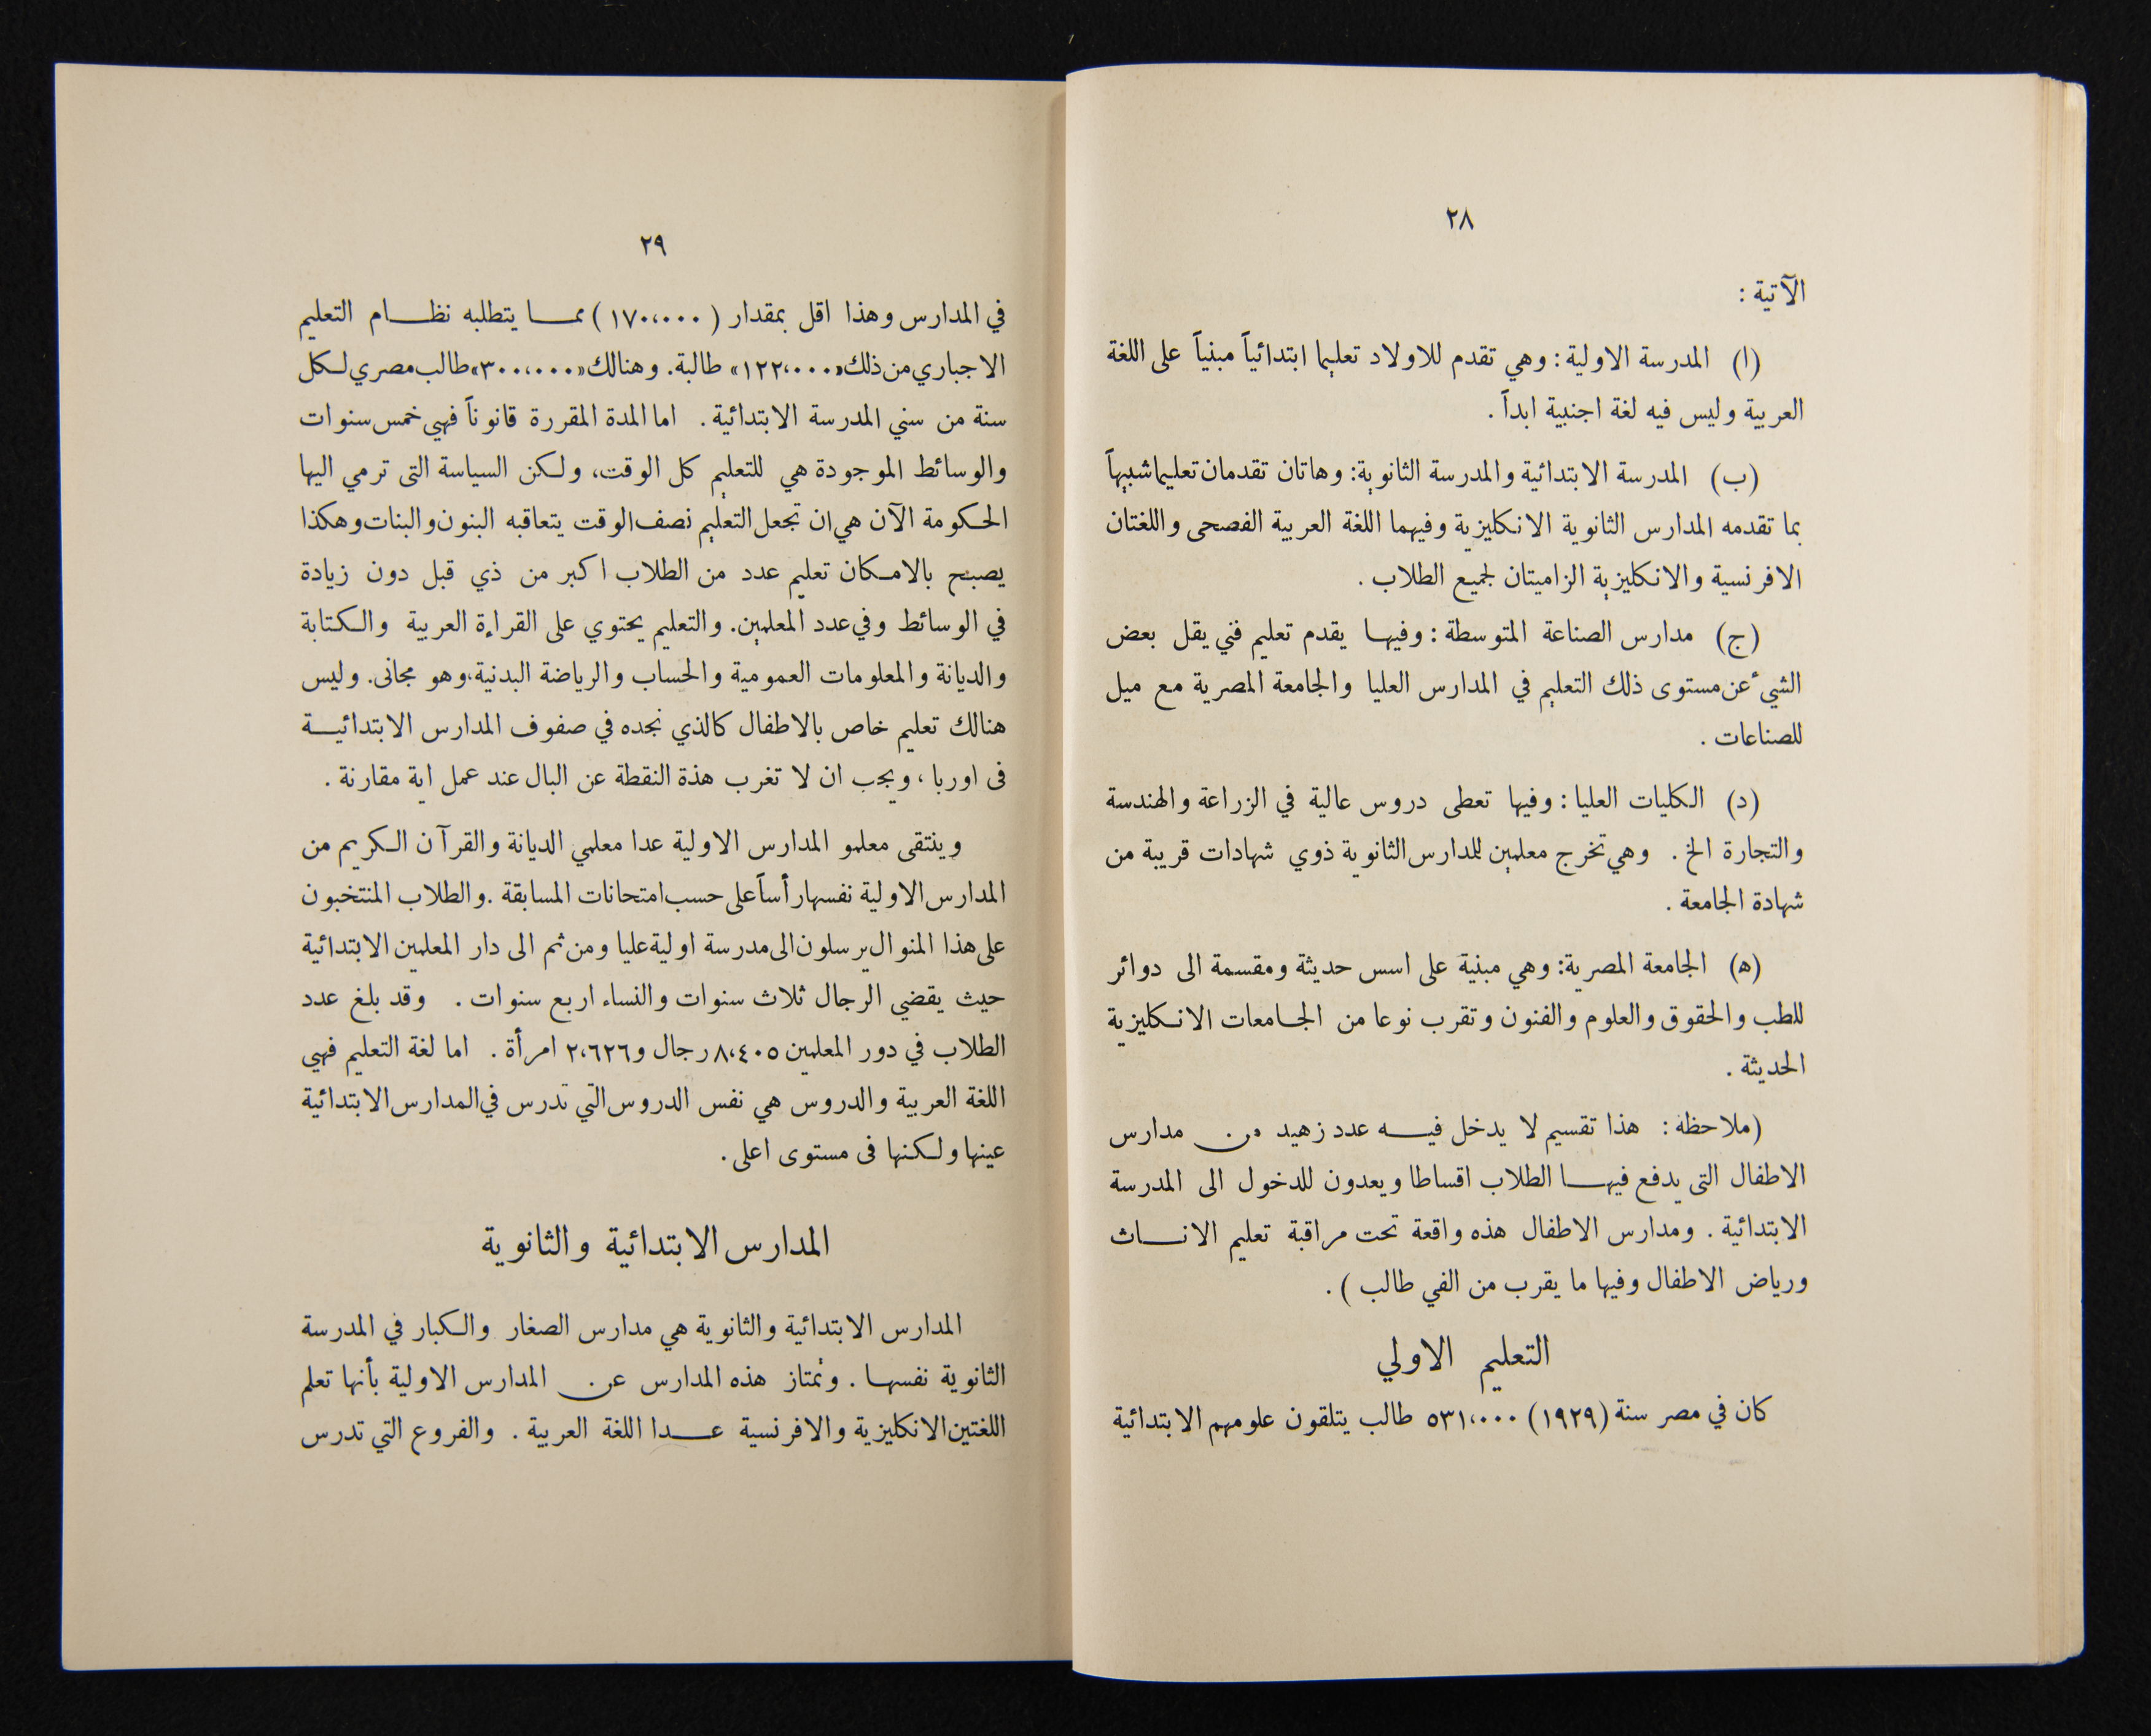 ٢٨
الآتية :
(ا) المدرسة الاولية : وهي تقدم للاولاد تعليما ابتدائياً مبنياً على اللغة
العربية وليس فيه لغة اجنبية ابداً .
(ب) المدرسة الابتدائية والمدرسة الثانوية: وهاتان تقدمان تعليما شبيهاً
بما تقدمه المدارس الثانوية الانكليزية وفيهما اللغة العربية الفصحى واللغتان
الافرنسية والانكليزية الزاميتان لجميع الطلاب .
(ج) مدارس الصناعة المتوسطة : وفيها يقدم تعليم فني يقل بعض
الشيء عن مستوى ذلك التعليم في المدارس العليا والجامعة المصرية مع ميل
للصناعات .
(د) الكليات العليا : وفيها تعطى دروس عالية في الزراعة والهندسة
والتجارة الخ . وهي تخرج معلمين للمدارس الثانوية ذوي شهادات قريبة من
شهادة الجامعة .
(ه) الجامعة المصرية: وهي مبنية على اسس حديثة ومقسمة الى دوائر
للطب والحقوق والعلوم والفنون وتقرب نوعا من الجامعات الانكليزية
الحديثة .
(ملاحظة : هذا تقسيم لا يدخل فيه عدد زهيد من مدارس
الاطفال التى يدفع فيها الطلاب اقساطا ويعدون للدخول الى المدرسة
الابتدائية . ومدارس الاطفال هذه واقعة تحت مراقبة تعليم الاناث
ورياض الاطفال وفيها ما يقرب من الفي طالب ) .
التعليم الاولي
كان في مصر سنة (١٩٢٩) ٥٣١،٠٠٠ طالب يتلقون علومهم الابتدائية
٢٩
في المدارس وهذا اقل بمقدار ( ١٧٠،٠٠٠ ) مما يتطلبه نظام التعليم
الاجباري من ذلك «١٢٢،٠٠٠» طالبة. وهنالك «٣٠٠،٠٠٠» طالب مصري لكل
سنة من سني المدرسة الابتدائية . اما المدة المقررة قانوناً فهي خمس سنوات
والوسائط الموجودة هي للتعليم كل الوقت، ولكن السياسة التى ترمي اليها
الحكومة الآن هي ان تجعل التعليم نصف الوقت يتعاقبه البنون والبنات وهكذا
يصبح بالامكان تعليم عدد من الطلاب اكبر من ذي قبل دون زيادة
في الوسائط وفي عدد المعلمين. والتعليم يحتوي على القراءة العربية والكتابة
والديانة والمعلومات العمومية والحساب والرياضة البدنية،وهو مجانى. وليس
هنالك تعليم خاص بالاطفال كالذي نجده في صفوف المدارس الابتدائية
فى اوربا ، ويجب ان لا تغرب هذة النقطة عن البال عند عمل اية مقارنة .
وينتقى معلمو المدارس الاولية عدا معلمي الديانة والقرآن الكريم من
المدارس الاولية نفسها رأساً على حسب امتحانات المسابقة .والطلاب المنتخبون
على هذا المنوال يرسلون الى مدرسة اولية عليا ومن ثم الى دار المعلمين الابتدائية
حيث يقضي الرجال ثلاث سنوات والنساء اربع سنوات . وقد بلغ عدد
الطلاب في دور المعلمين ٨،٤٠٥ رجال و٢،٦٢٦ امرأة . اما لغة التعليم فهي
اللغة العربية والدروس هي نفس الدروس التي تدرس في المدارس الابتدائية
عينها ولكنها فى مستوى اعلى .
المدارس الابتدائية والثانوية
المدارس الابتدائية والثانوية هي مدارس الصغار والكبار في المدرسة
الثانوية نفسها . وتمتاز هذه المدارس عن المدارس الاولية بأنها تعلم
اللغتين الانكليزية والافرنسية عدا اللغة العربية . والفروع التي تدرس